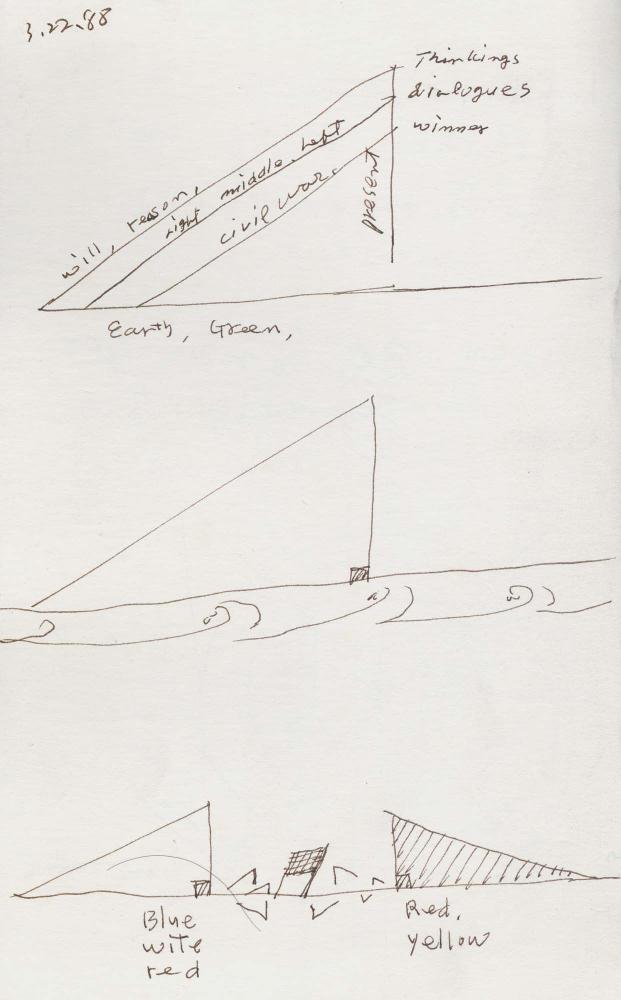 3.22.88
Thinkings
dialogues
winner
will, reason,
right middle, Left
civil war,
present
Earth, Green,
Blue
wite
red
Red,
yellow